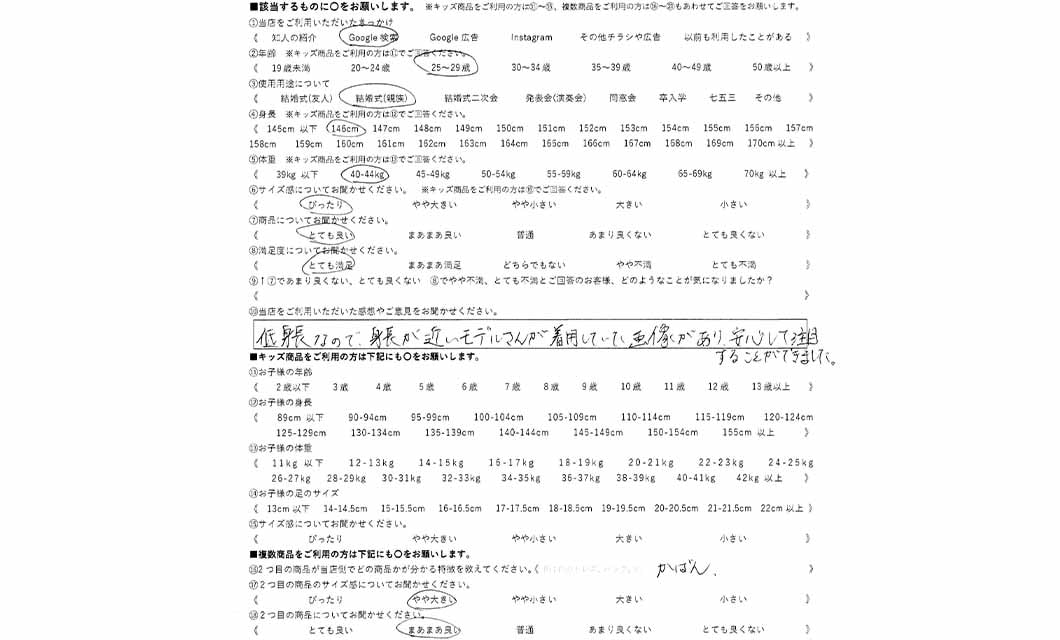 ■該当するものに〇をお願いします。 ※キッズ商品をご利用の方は⑪～⑮、複数商品をご利用の方は⑯～⑳もあわせてご回答をお願いします。
①当店をご利用いただいたきっかけ
《 知人の紹介 Google 検索 Google 広告 Instagram その他チラシや広告 以前も利用したことがある 》
②年齢 ※キッズ商品をご利用の方は⑪でご回答ください。
《 19歳未満 20～24歳 25～29歳 30～34歳 35～39歳 40～49歳 50歳以上 》
③使用用途について
《 結婚式(友人) 結婚式(親族) 結婚式二次会 発表会(演奏会) 同窓会 卒入学 七五三 その他 》
④身長 ※キッズ商品をご利用の方は⑫でご回答ください。
《 145cm 以下 146cm 147cm 148cm 149cm 150cm 151cm 152cm 153cm 154cm 155cm 156cm 157cm
158cm 159cm 160cm 161cm 162cm 163cm 164cm 165cm 166cm 167cm 168cm 169cm 170cm以上 》
⑤体重 ※キッズ商品をご利用の方は⑬でご回答ください。
《 39kg 以下 40-44kg 45-49kg 50-54kg 55-59kg 60-64kg 65-69kg 70kg 以上 》
⑥サイズ感についてお聞かせください。 ※キッズ商品をご利用の方は⑮でご回答ください。
《 ぴったり やや大きい やや小さい 大きい 小さい 》
⑦商品についてお聞かせください。
《 とても良い まあまあ良い 普通 あまり良くない とても良くない 》
⑧満足度についてお聞かせください。
《 とても満足 まあまあ満足 どちらでもない やや不満 とても不満 》
⑨↑⑦であまり良くない、とても良くない ⑧でやや不満、とても不満とご回答のお客様、どのようなことが気になりましたか？
《 》
⑩当店をご利用いただいた感想やご意見をお聞かせください。
低身長なので、身長が近いモデルさんが着用していた画像があり、安心して注目
することができました。
■キッズ商品をご利用の方は下記にも〇をお願いします。
⑪お子様の年齢
《 2歳以下 3歳 4歳 5歳 6歳 7歳 8歳 9歳 10歳 11歳 12歳 13歳以上 》
⑫お子様の身長
《 89cm 以下 90-94cm 95-99cm 100-104cm 105-109cm 110-114cm 115-119cm 120-124cm
125-129cm 130-134cm 135-139cm 140-144cm 145-149cm 150-154cm 155cm 以上 》
⑬お子様の体重
《 11kg 以下 12-13kg 14-15kg 16-17kg 18-19kg 20-21kg 22-23kg 24-25kg
26-27kg 28-29kg 30-31kg 32-33kg 34-35kg 36-37kg 38-39kg 40-41kg 42kg 以上 》
⑭お子様の足のサイズ
《 13cm以下 14-14.5cm 15-15.5cm 16-16.5cm 17-17.5cm 18-18.5cm 19-19.5cm 20-20.5cm 21-21.5cm 22cm以上 》
⑮サイズ感についてお聞かせください。
《 ぴったり やや大きい やや小さい 大きい 小さい 》
■複数商品をご利用の方は下記にも〇をお願いします。
⑯2つ目の商品が当店側でどの商品かが分かる特徴を教えてください。《 かばん. 》
⑰2つ目の商品のサイズ感についてお聞かせください。
《 ぴったり やや大きい やや小さい 大きい 小さい 》
⑱2つ目の商品についてお聞かせください。
《 とても良い まあまあ良い 普通 あまり良くない とても良くない 》